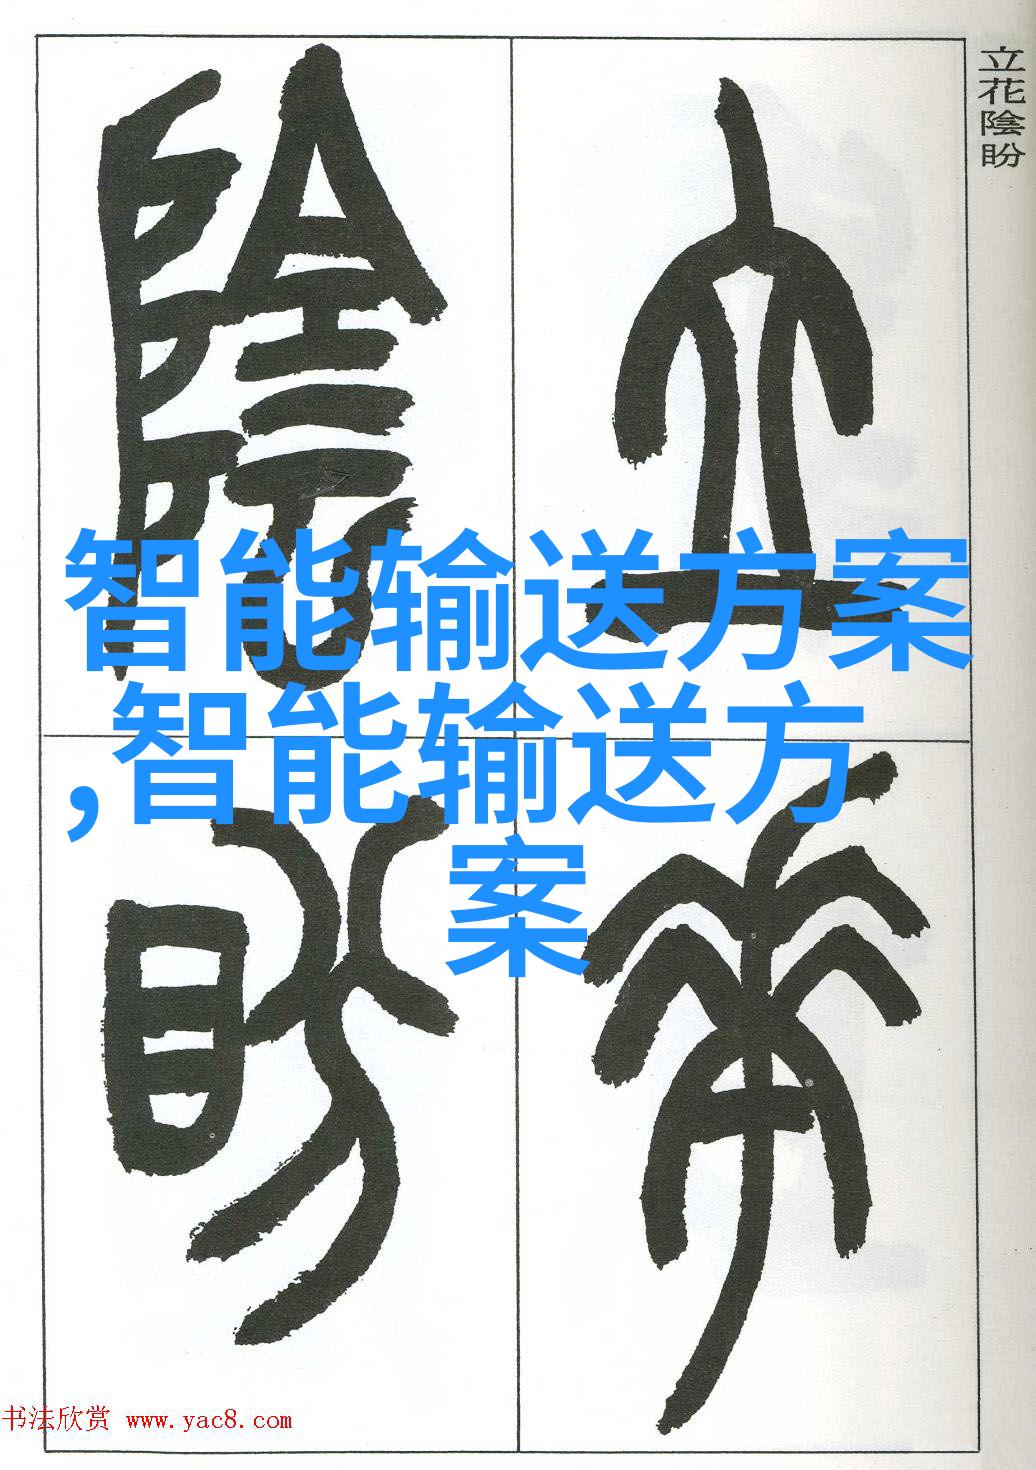 立花陰盼
立
花
陰
盼
智能输送方案
,智能输送方
案
书法欣赏 www.yac8.com